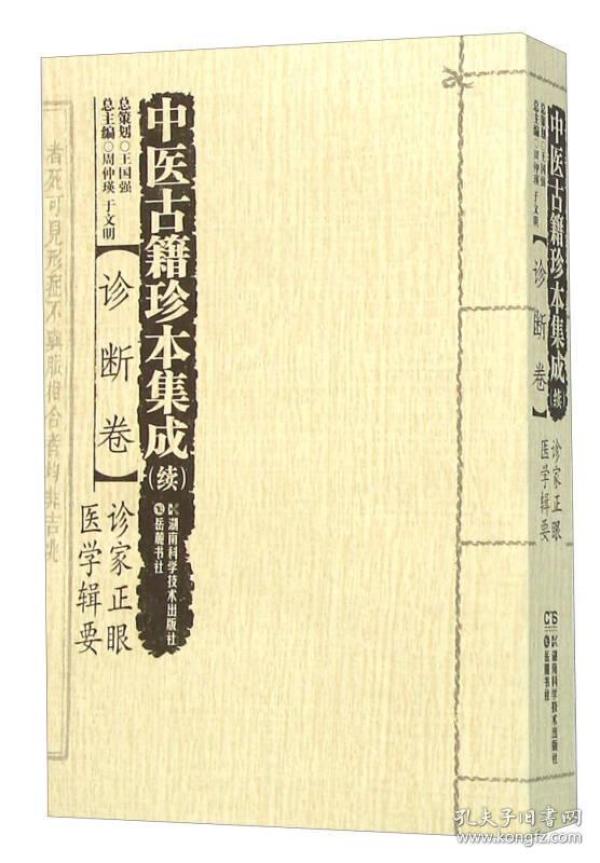 中医古籍珍本集成(续)
湖南科学技术出版社
岳麓书社
总策划○王国强
总主编○周仲瑛 于文明
【诊断卷】
诊家正眼
医学辑要
者死可見形症不與脈相合者均非吉兆
中医古籍珍本集成(续)
总策划○王国强
总主编○周仲瑛 于文明
【诊断卷】
诊家正眼
医学辑要
湖南科学技术出版社
岳麓书社
孔夫子旧书网
www.kongfz.com